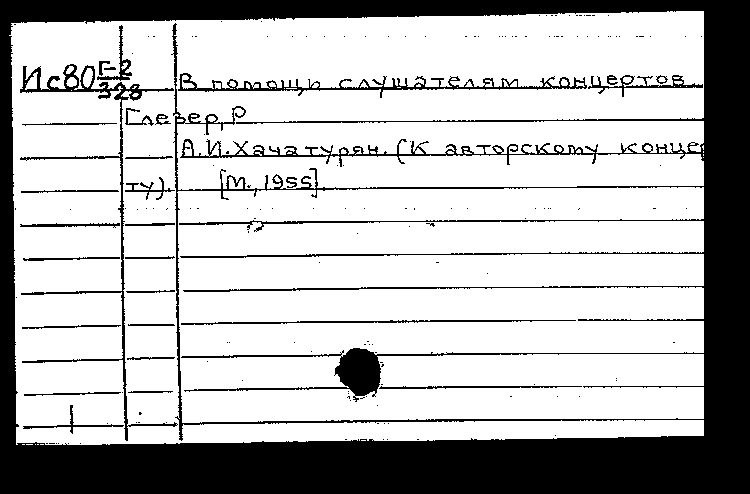 Ис80 Г-2 В помощи слушателям концертов
328
Глезер, Р
А.И.Хачатурян. (К авторскому концер
ту). [М., 1955].